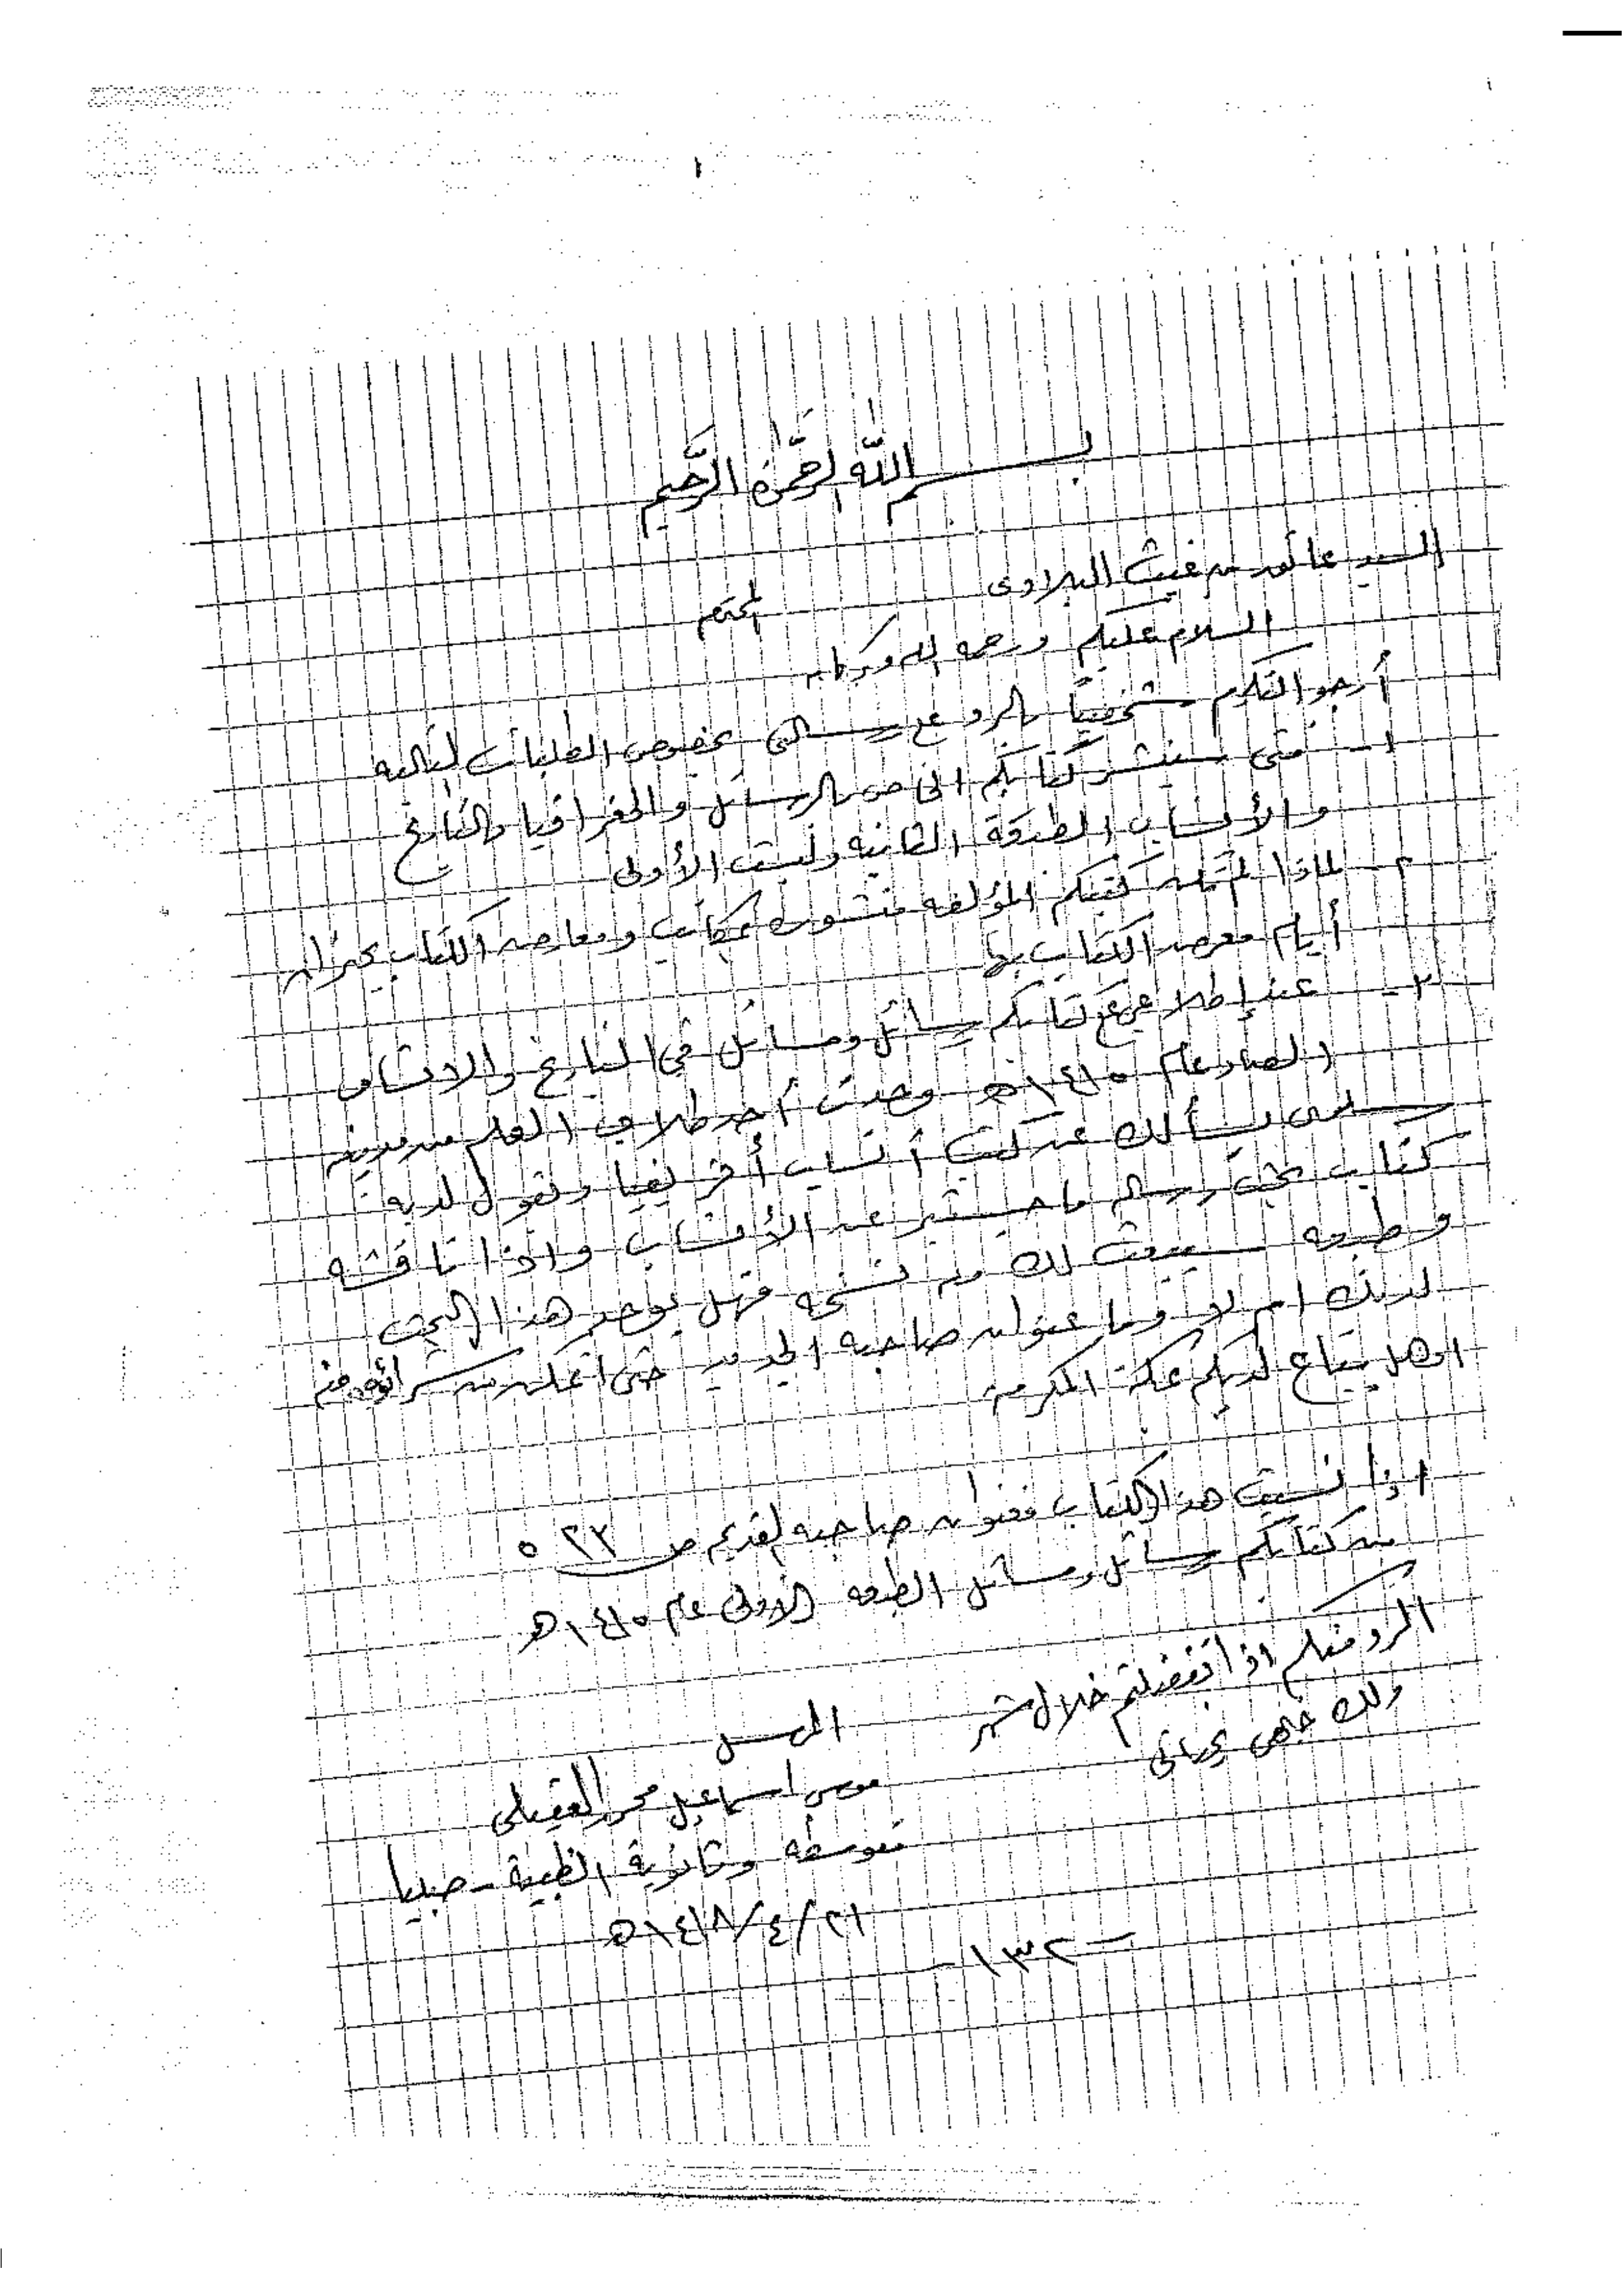 ١
بسم الله الرحمن الرحيم
السيد عاتق بن غيث البلادي المحترم
السلام عليكم ورحمة الله وبركاته
أرجو التكرم شخصياً بالرد على رسالتي بخصوص الطلبات التالية
١ - متى سينشر كتابكم الخاص بالرسائل والجغرافيا والتاريخ
والأنساب الطبعة الثانية وليست الأولى
٢ - لماذا لم تكن كتبكم المؤلفة منشورة بمكاتب ومعارض الكتاب بجيزان
أيام معرض الكتاب بها
٣ - عند إطلاعي على كتابكم رسائل ومسائل في التاريخ والانساب
الصادر عام ١٤١٥هـ وجدت أحد طلاب العلم من مدينة
يسألك عن كتب أنساب أفريقيا وتقول لديه
كتاب بحث رسالة ماجستير عن الأنساب واذا ناقشه
وطبعه سيبعث لك منه نسخه فهل يوجد هذا البحث
لديك ام لا وما عنوان صاحبه الجديد حتى أتمكن من شرائه منه
اوهل يباع لديكم بمكة المكرمة
اذا نسيت هذا الكتاب فعنوان صاحبه القديم ص ٢٢٥
من كتابكم رسائل ومسائل الطبعه الأولى عام ١٤١٥هـ
الرد منكم اذا تفضلتم خلال شهر
وذلك خاص مجاني
المرسل
موسى اسماعيل محمد العقيلي
متوسطه وثانوية الظبية - صبيا
٢١/٤/١٤١٨هـ
- ١٣٢ -